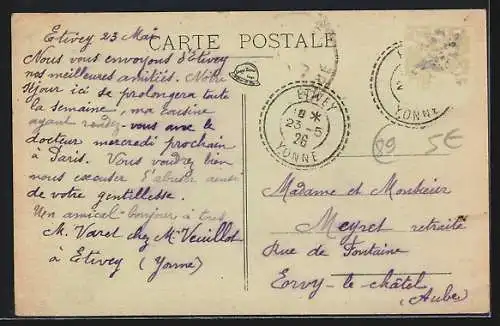 Etivey 23 Mai
Nous vous envoyons d'Etivey
nos meilleures amitiés. Notre
séjour ici se prolongera toute
la semaine, ma cousine
ayant rendez-vous avec le
docteur mercredi prochain
à Paris. Vous voudrez bien
nous excuser d'abuser ainsi
de votre gentillesse.
Mon amical bonjour à tous
M. Varet chez Mr Veuillot
à Etivey (Yonne)
CARTE POSTALE
ETIVEY
23-5
26
YONNE
YONNE
89 5€
Madame et Monsieur
Meyret retraité
Rue de Fontaine
Ervy-le-châtel
(Aube)